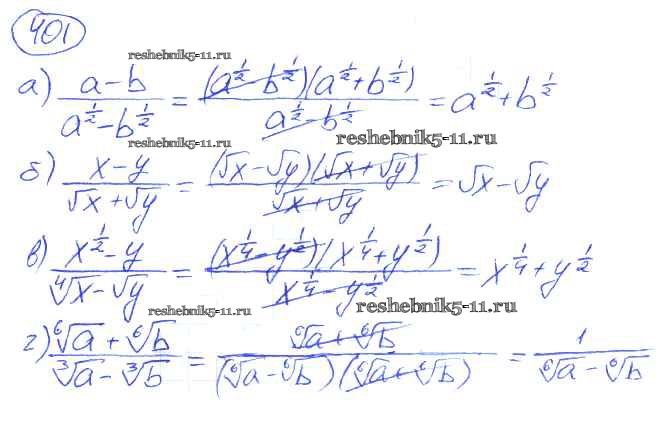 401
reshebnik5-11.ru
а) (a-b)/(a^{1/2}-b^{1/2}) = ((a^{1/2}-b^{1/2})(a^{1/2}+b^{1/2}))/(a^{1/2}-b^{1/2}) = a^{1/2}+b^{1/2}
reshebnik5-11.ru
reshebnik5-11.ru
б) (x-y)/(√x+√y) = ((√x-√y)(√x+√y))/(√x+√y) = √x-√y
в) (x^{1/2}-y)/(⁴√x-√y) = ((x^{1/4}-y^{1/2})(x^{1/4}+y^{1/2}))/(x^{1/4}-y^{1/2}) = x^{1/4}+y^{1/2}
reshebnik5-11.ru
reshebnik5-11.ru
г) (⁶√a+⁶√b)/(³√a-³√b) = (⁶√a+⁶√b)/((⁶√a-⁶√b)(⁶√a+⁶√b)) = 1/(⁶√a-⁶√b)